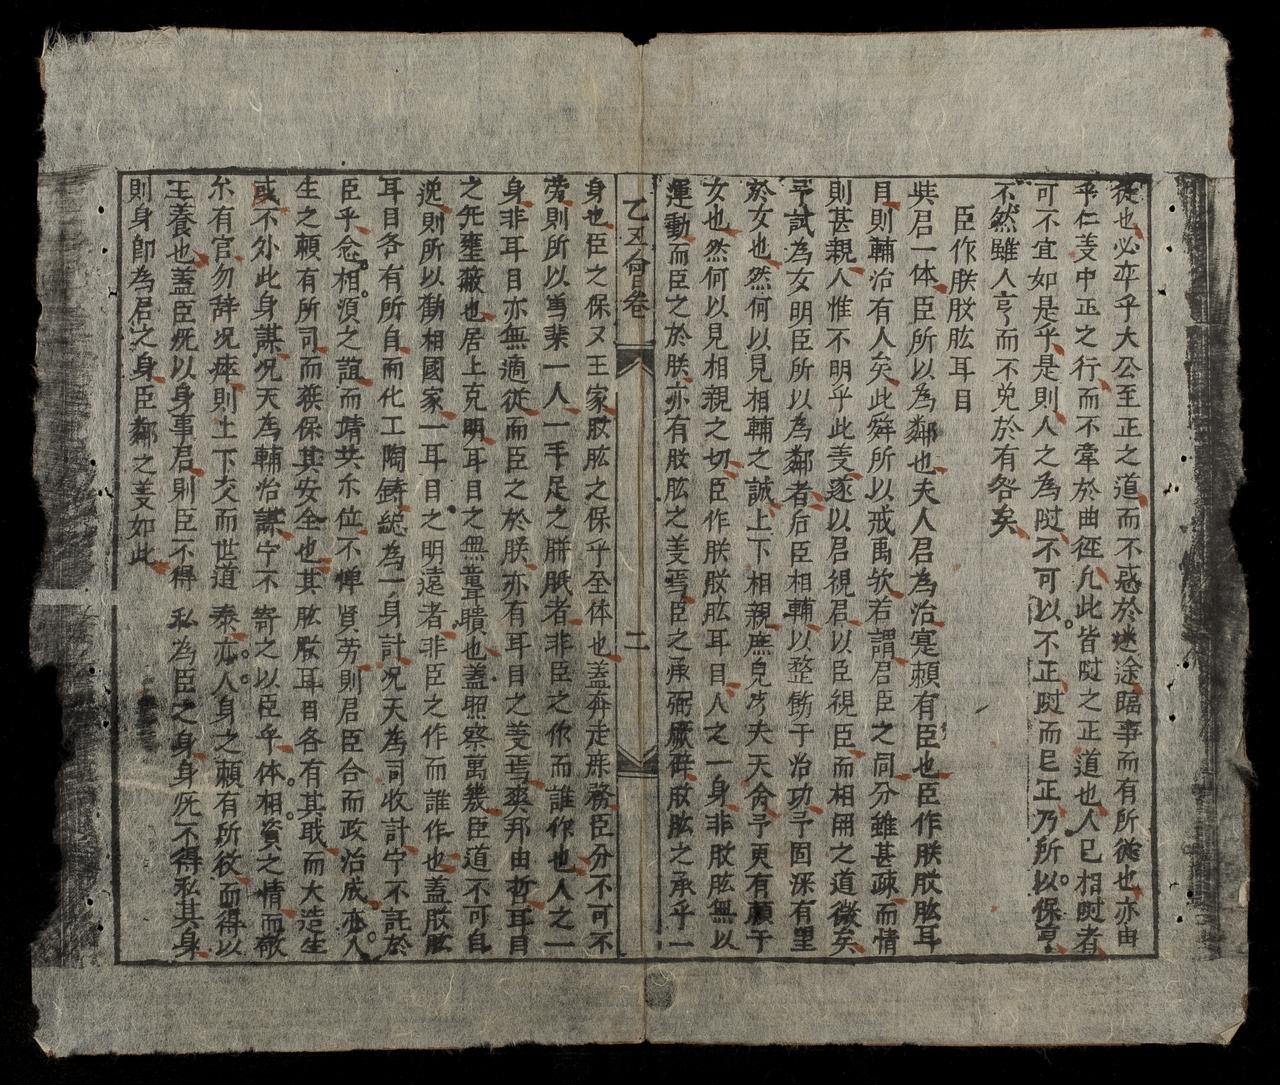 從也必亦乎大公至正之道而不惑於迷途臨事而有所從也亦由
乎仁義中正之行而不牽於曲徑允此皆時之正道也人已相時者
可不宜如是乎是則人之為時不可以不正時而已正乃所以保亨
不然雖人亨而不免於有咎矣
臣作朕股肱耳目
與君一体臣所以為鄰也夫人君為治寔賴有臣也臣作朕股肱耳
目則輔治有人矣此舜所以戒禹欤若謂君臣之同分雖甚疎而情
則甚親人惟不明乎此義遂以君視君以臣視臣而相用之道微矣
予試為女明臣所以為鄰者后臣相輔以整飭于治功予固深有望
於女也然何以見相輔之誠上下相親庶見夫天命予更有願于
女也然何以見相親之切臣作朕股肱耳目人之一身非股肱無以
運動而臣之於朕亦有股肱之義焉臣之承弼厥辟股肱之承乎一
乙五會卷
二
身也臣之保乂王家股肱之保乎全体也盖奔走庶務臣分不可不
旁則所以笃棐一人一手足之胼胝者非臣之作而誰作也人之一
身非耳目亦無適從而臣之於朕亦有耳目之義焉爽邦由哲耳目
之先壅蔽也居上克明耳目之無聾聵也盖照察萬幾臣道不可自
逸則所以勸相國家一耳目之明遠者非臣之作而誰作也盖股肱
耳目各有所自而化工陶鋳総為一身計况天為司收計宁不託於
臣乎念相須之誼而靖共尒位不憚賢劳則君臣合而政治成亦人
生之頼有所司而葆保其安全也其肱股耳目各有其職而大造生
或不外此身謀况天為輔治謀宁不寄之以臣乎体相資之情而敬
尒有官勿辞况瘁則上下交而世道泰亦人身之頼有所役而得以
王養也盖臣既以身事君則臣不得私為臣之身身既不得私其身
則身即為君之身臣鄰之義如此